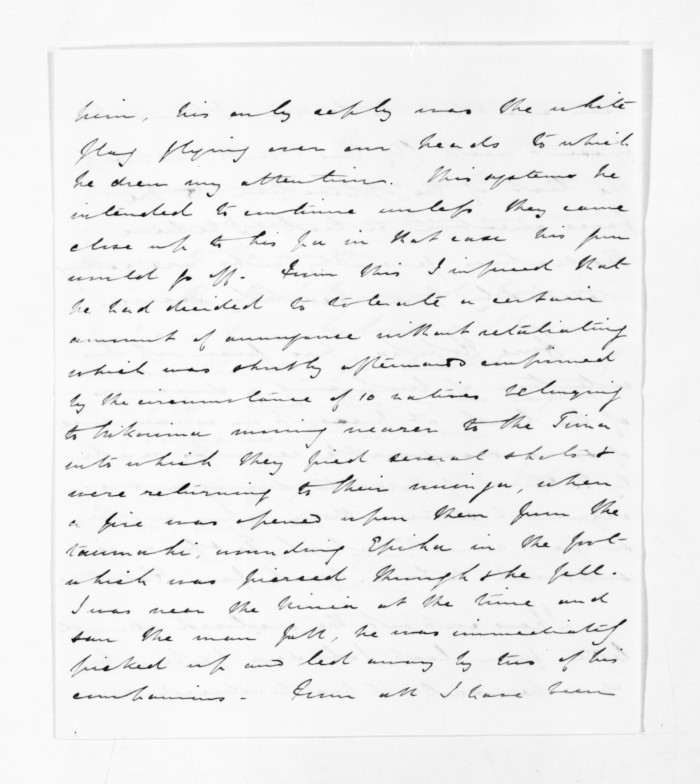 him, his only reply was the white
flag flying over our heads to which
he drew my attention. This system he
intended to continue unless they came
close up to his pa in that case his gun
would go off. From this I inferred that
he had decided to tolerate a certain
amount of annoyance without retaliating
which was shortly afterwards confirmed
by the circumstance of 10 natives belonging
to Ihikaima moving nearer to the
into which they fired several shots &
were returning to their, when
a fire was opened upon them from the
taumaki, wounding Epiha in the foot
which was pierced through & he fell.
I was near the Ninia at the time and
saw the man fall, he was immediately
picked up and led away by two of his
companions. From all I have been